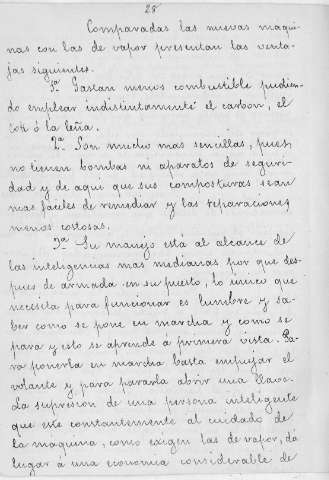 28
Comparadas las nuevas maqui-
nas con las de vapor presentan las venta-
jas siguientes.
1ª Gastan menos combustible pudien-
do emplear indistintamente el carbon, el
cok ó la leña.
2ª Son mucho mas sencillas, pues
no tienen bombas ni aparatos de seguri-
dad y de aqui que sus composturas sean
mas faciles de remediar y las reparaciones
menos costosas.
3ª Su manejo está al alcance de
las inteligencias mas medianas por que des-
pues de armada en su puesto, lo unico que
necesita para funcionar es lumbre y sa-
ber como se pone en marcha y como se
para y esto se aprende á primera vista. Pa-
ra ponerla en marcha basta empujar el
volante y para pararla abrir una llave.
La supresion de una persona inteligente
que esté constantemente al cuidado de
la maquina, como exigen las de vapor, dá
lugar á una economia considerable de